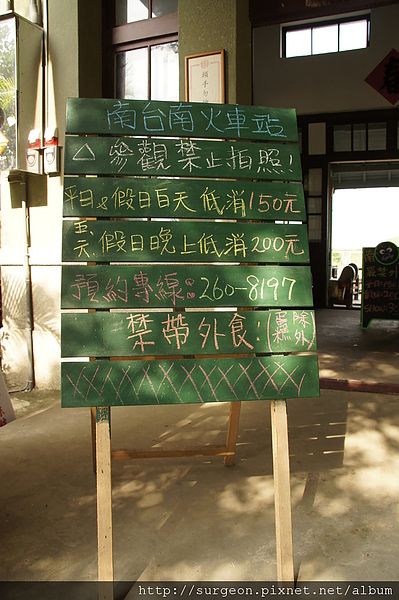 南台南火車站
△參觀禁止拍照!
平日&假日白天 低消150元
五、六 假日晚上低消200元
預約專線:260-8197
禁帶外食!(蛋糕除外)
XXXXXXXXXXXX
http://surgeon.pixnet.net/album